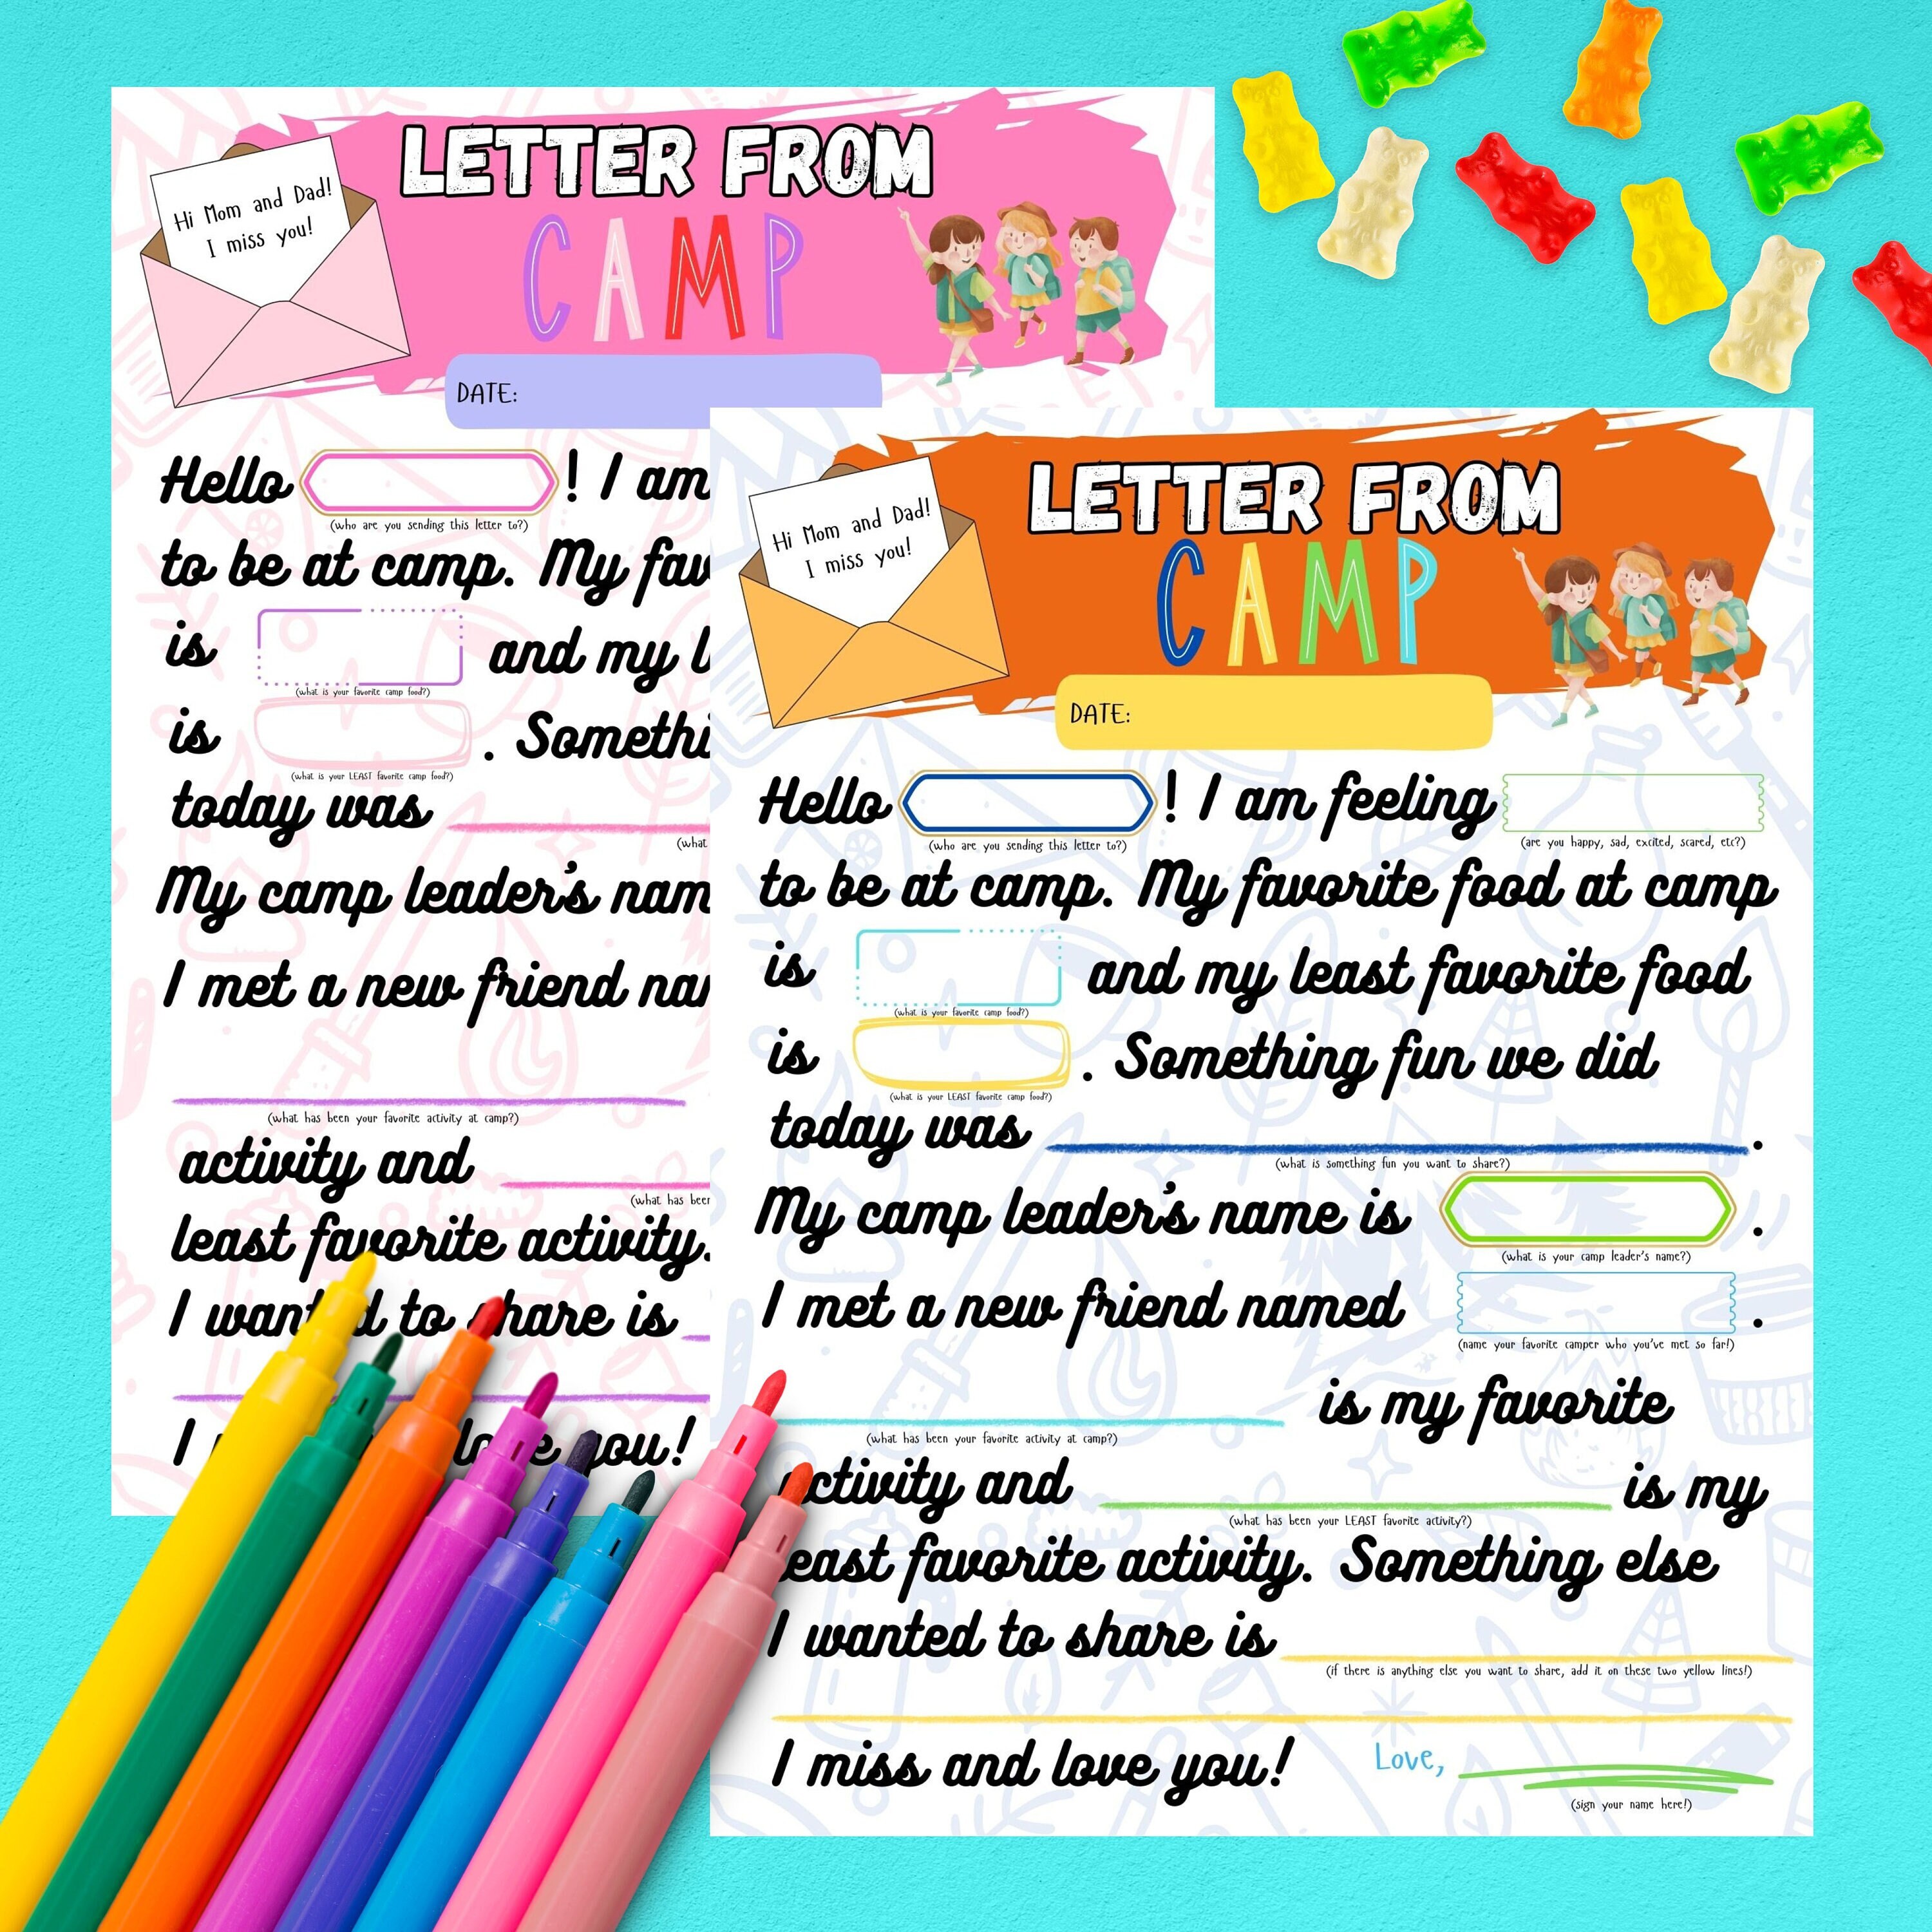 LETTER FROM
CAMP
Hi Mom and Dad!
I miss you!
DATE:
Hello ! I am
(who are you sending this letter to?)
to be at camp. My fav
is and my l
(what is your favorite camp food?)
is . Somethi
(what is your LEAST favorite camp food?)
today was
(what
My camp leader's nam
I met a new friend nam
(what has been your favorite activity at camp?)
activity and
(what has been
least favorite activity.
I wanted to share is
I love you!
LETTER FROM
CAMP
Hi Mom and Dad!
I miss you!
DATE:
Hello ! I am feeling
(who are you sending this letter to?) (are you happy, sad, excited, scared, etc?)
to be at camp. My favorite food at camp
is and my least favorite food
(what is your favorite camp food?)
is . Something fun we did
(what is your LEAST favorite camp food?)
today was .
(what is something fun you want to share?)
My camp leader's name is .
(what is your camp leader's name?)
I met a new friend named .
(name your favorite camper who you've met so far!)
is my favorite
(what has been your favorite activity at camp?)
activity and is my
(what has been your LEAST favorite activity?)
least favorite activity. Something else
I wanted to share is
(if there is anything else you want to share, add it on these two yellow lines!)
I miss and love you! Love,
(sign your name here!)